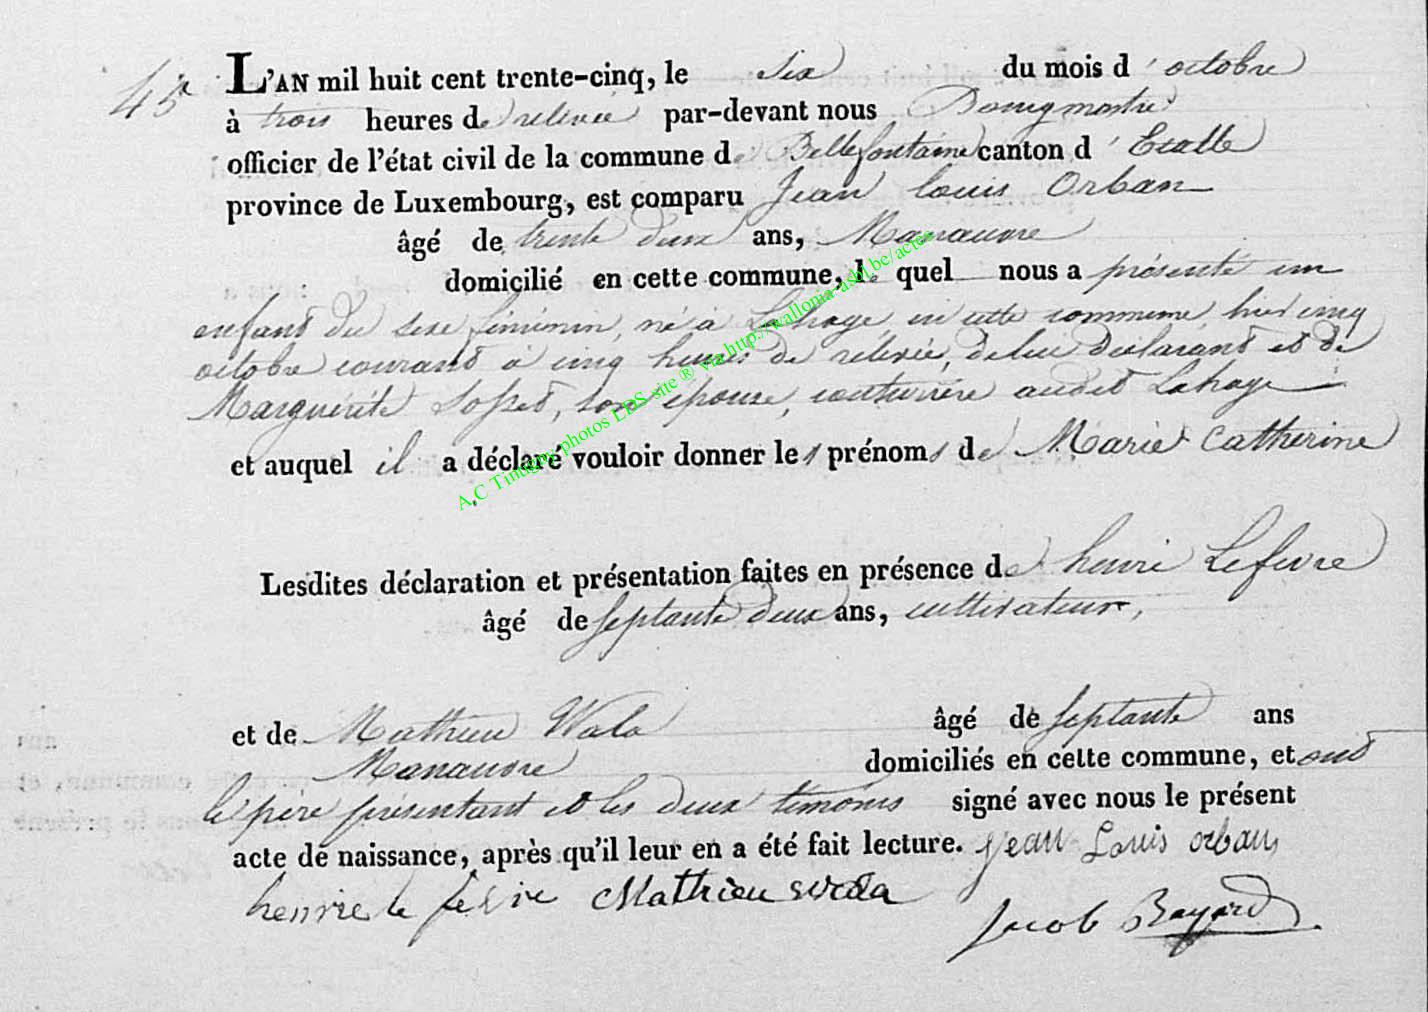 45
L'AN mil huit cent trente-cinq, le six du mois d'octobre
à trois heures de relevée par-devant nous Bourgmestre
officier de l'état civil de la commune de Bellefontaine canton d'Etalle
province de Luxembourg, est comparu Jean Louis Orban
âgé de trente deux ans, Manœuvre
domicilié en cette commune, le quel nous a présenté un
enfant du sexe féminin, né à Lahage en cette commune hier cinq
octobre courant à cinq heures de relevée, de lui déclarant et de
Marguerite Sosset, son épouse, couturière audit Lahage
et auquel il a déclaré vouloir donner les prénoms de Marie Catherine
Lesdites déclaration et présentation faites en présence de henri Lefevre
âgé de septante deux ans, cultivateur,
et de Mathieu Wala âgé de septante ans
Manauvre domiciliés en cette commune, et ont
le père présentant et les deux témoins signé avec nous le présent
acte de naissance, après qu'il leur en a été fait lecture. Jean Louis orban
henrie le fevre Mathieu wala
Jacob Bayard
A.C Tintigny photos LDS site ® via http://wallonia-asbl.be/actes